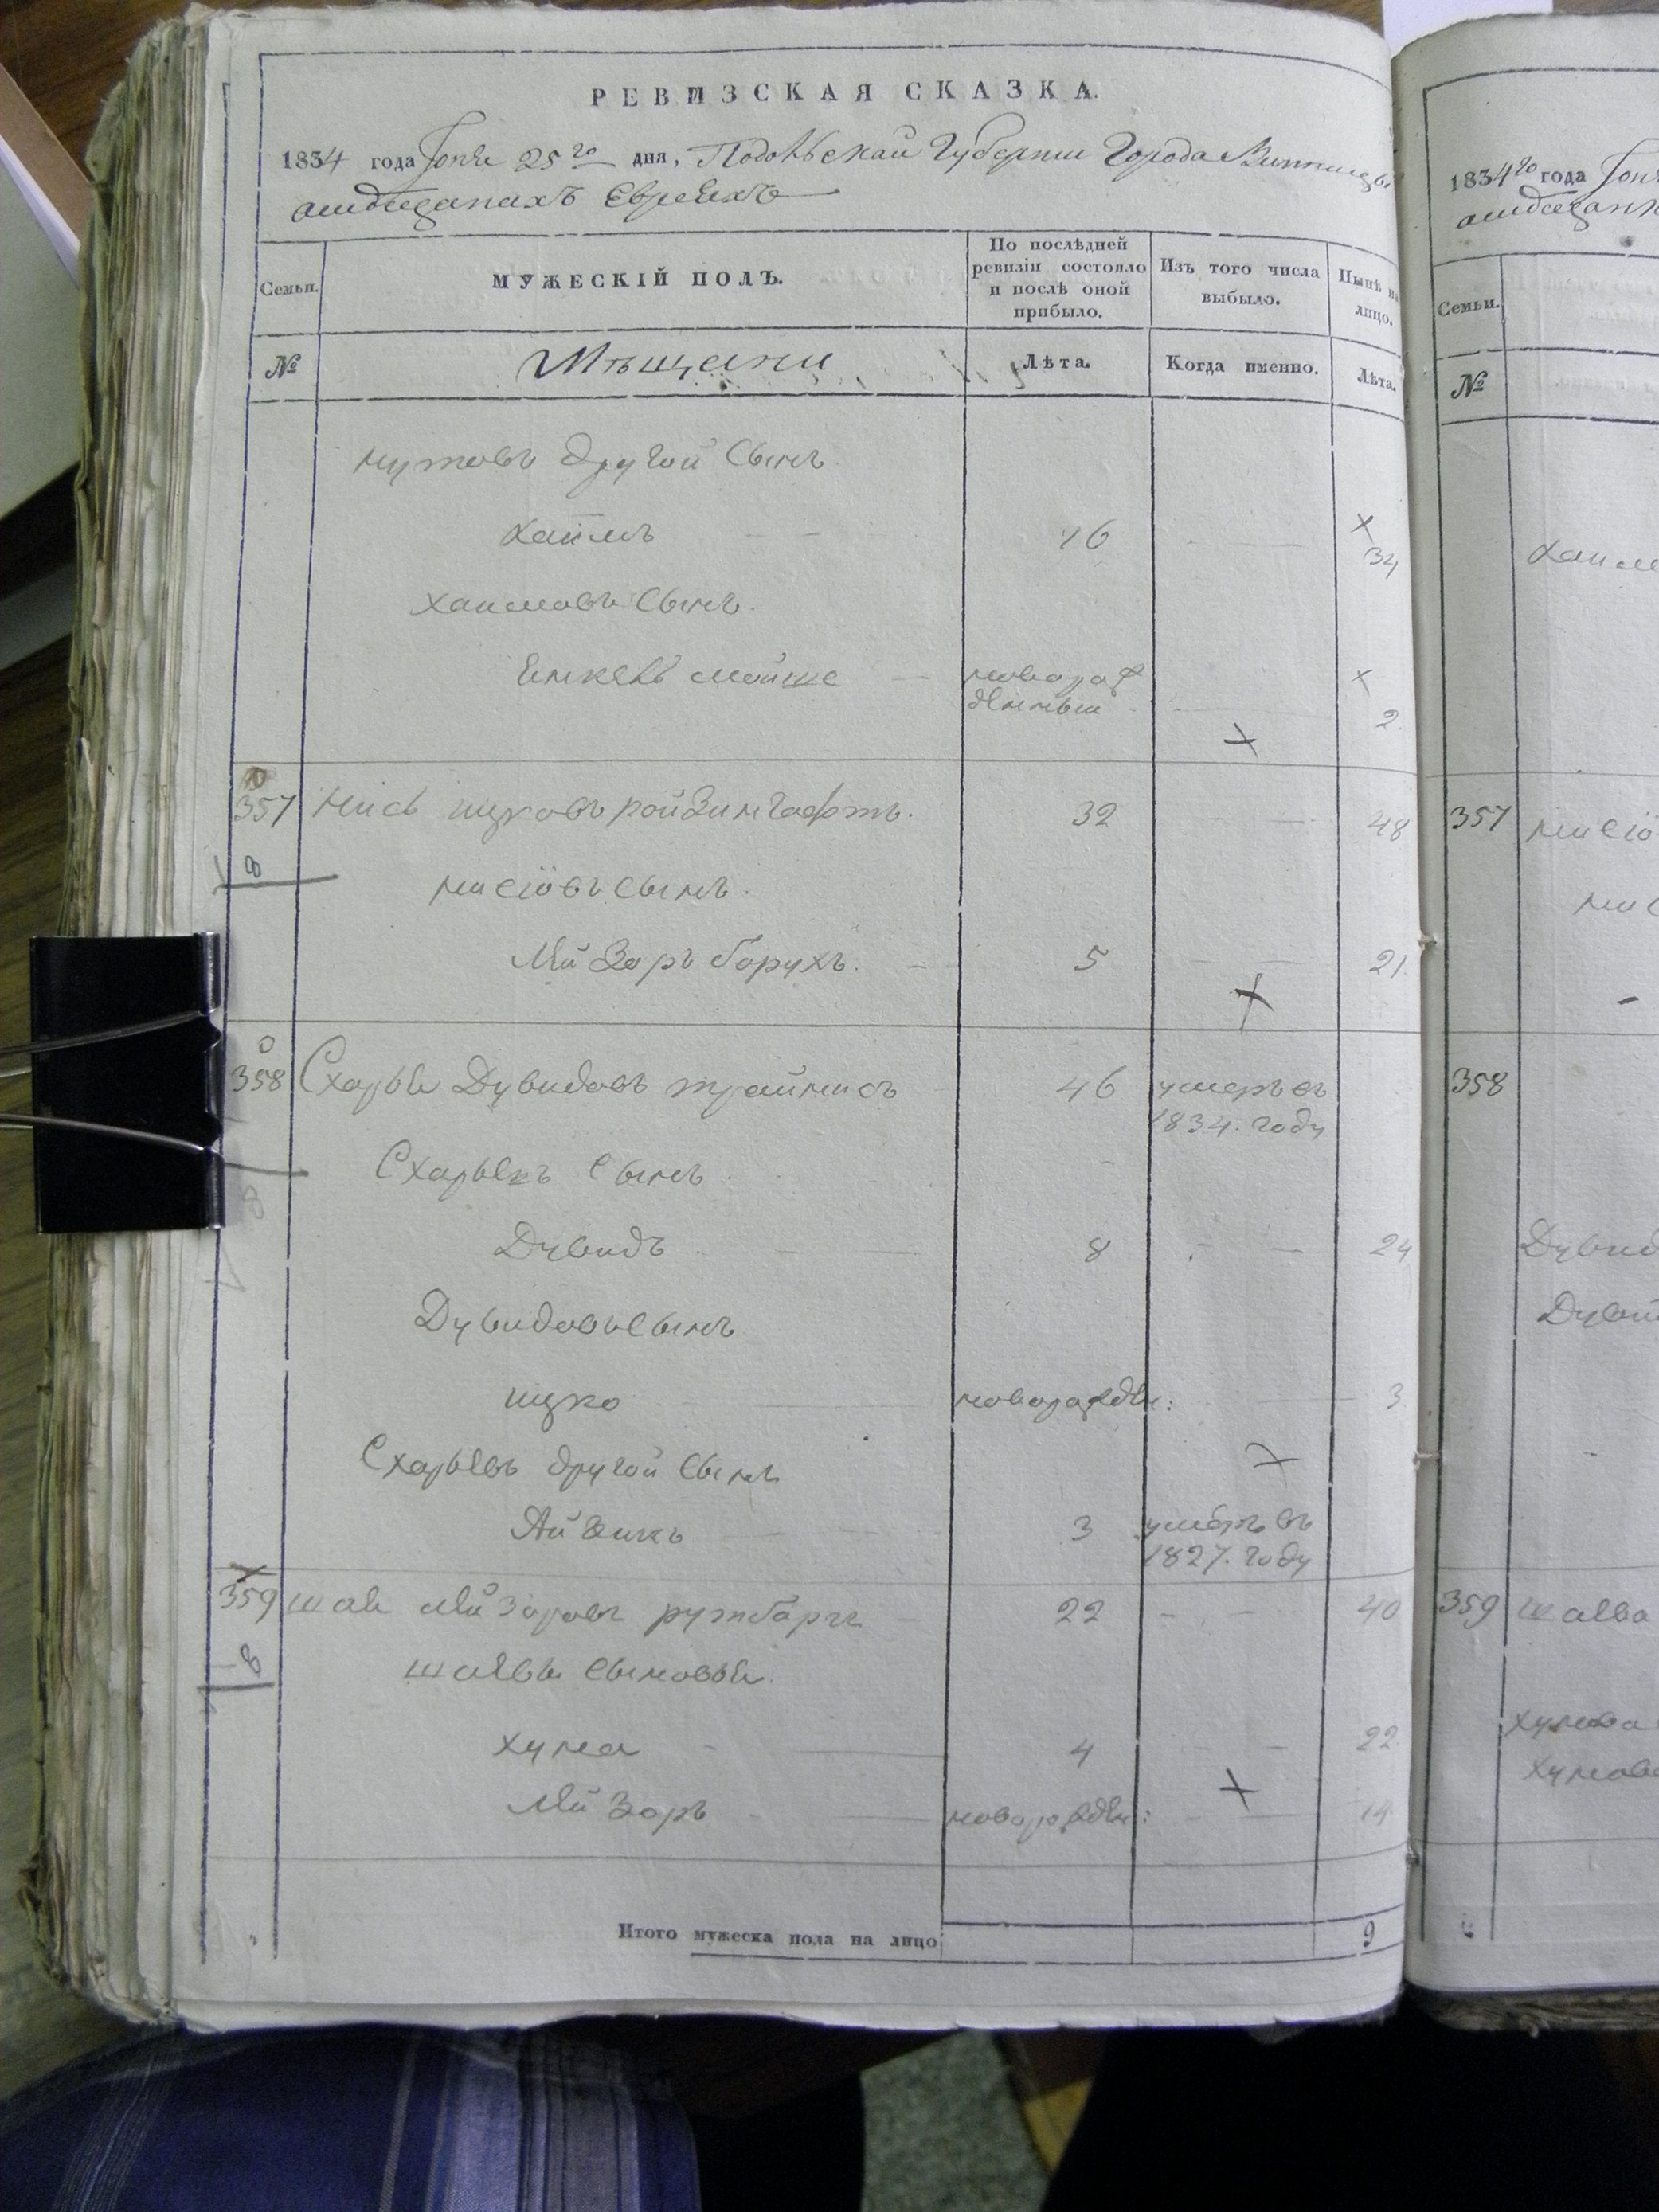 РЕВИЗСКАЯ СКАЗКА.
1834 года Іюня 25го дня, Подольской Губернии Города Винницы
о мѣщанахъ Евреяхъ
Семьи.
МУЖЕСКІЙ ПОЛЪ.
По послѣдней ревизіи состояло и послѣ оной прибыло.
Изъ того числа выбыло.
Нынѣ на лицо.
№
Мѣщани
Лѣта.
Когда именно.
Лѣта.
нутовъ другой сынъ
хаимъ 16 34
хаимовъ сынъ.
мойше новорож
денный 2
357 нись ицковъ ройзингафтъ. 32 48
8
нисiовъ сынъ.
лейзоръ борухъ. 5 21
358 Схарья Дувидовъ трайнисъ 46 умеръ въ
1834. году
8
сынъ
Дувидъ 8 24
Дувидовъ сынъ
ицко новорожден: 3
другой сынъ
Айзикъ 3 умеръ въ
1827. году
359 лейзоровъ рутбаргъ 22 40
8
сыновья.
хуна 4 22
лейзоръ новорожден: 14
Итого мужеска пола на лицо 9
1834го года
Семьи.
№
357
358
Дувид
359